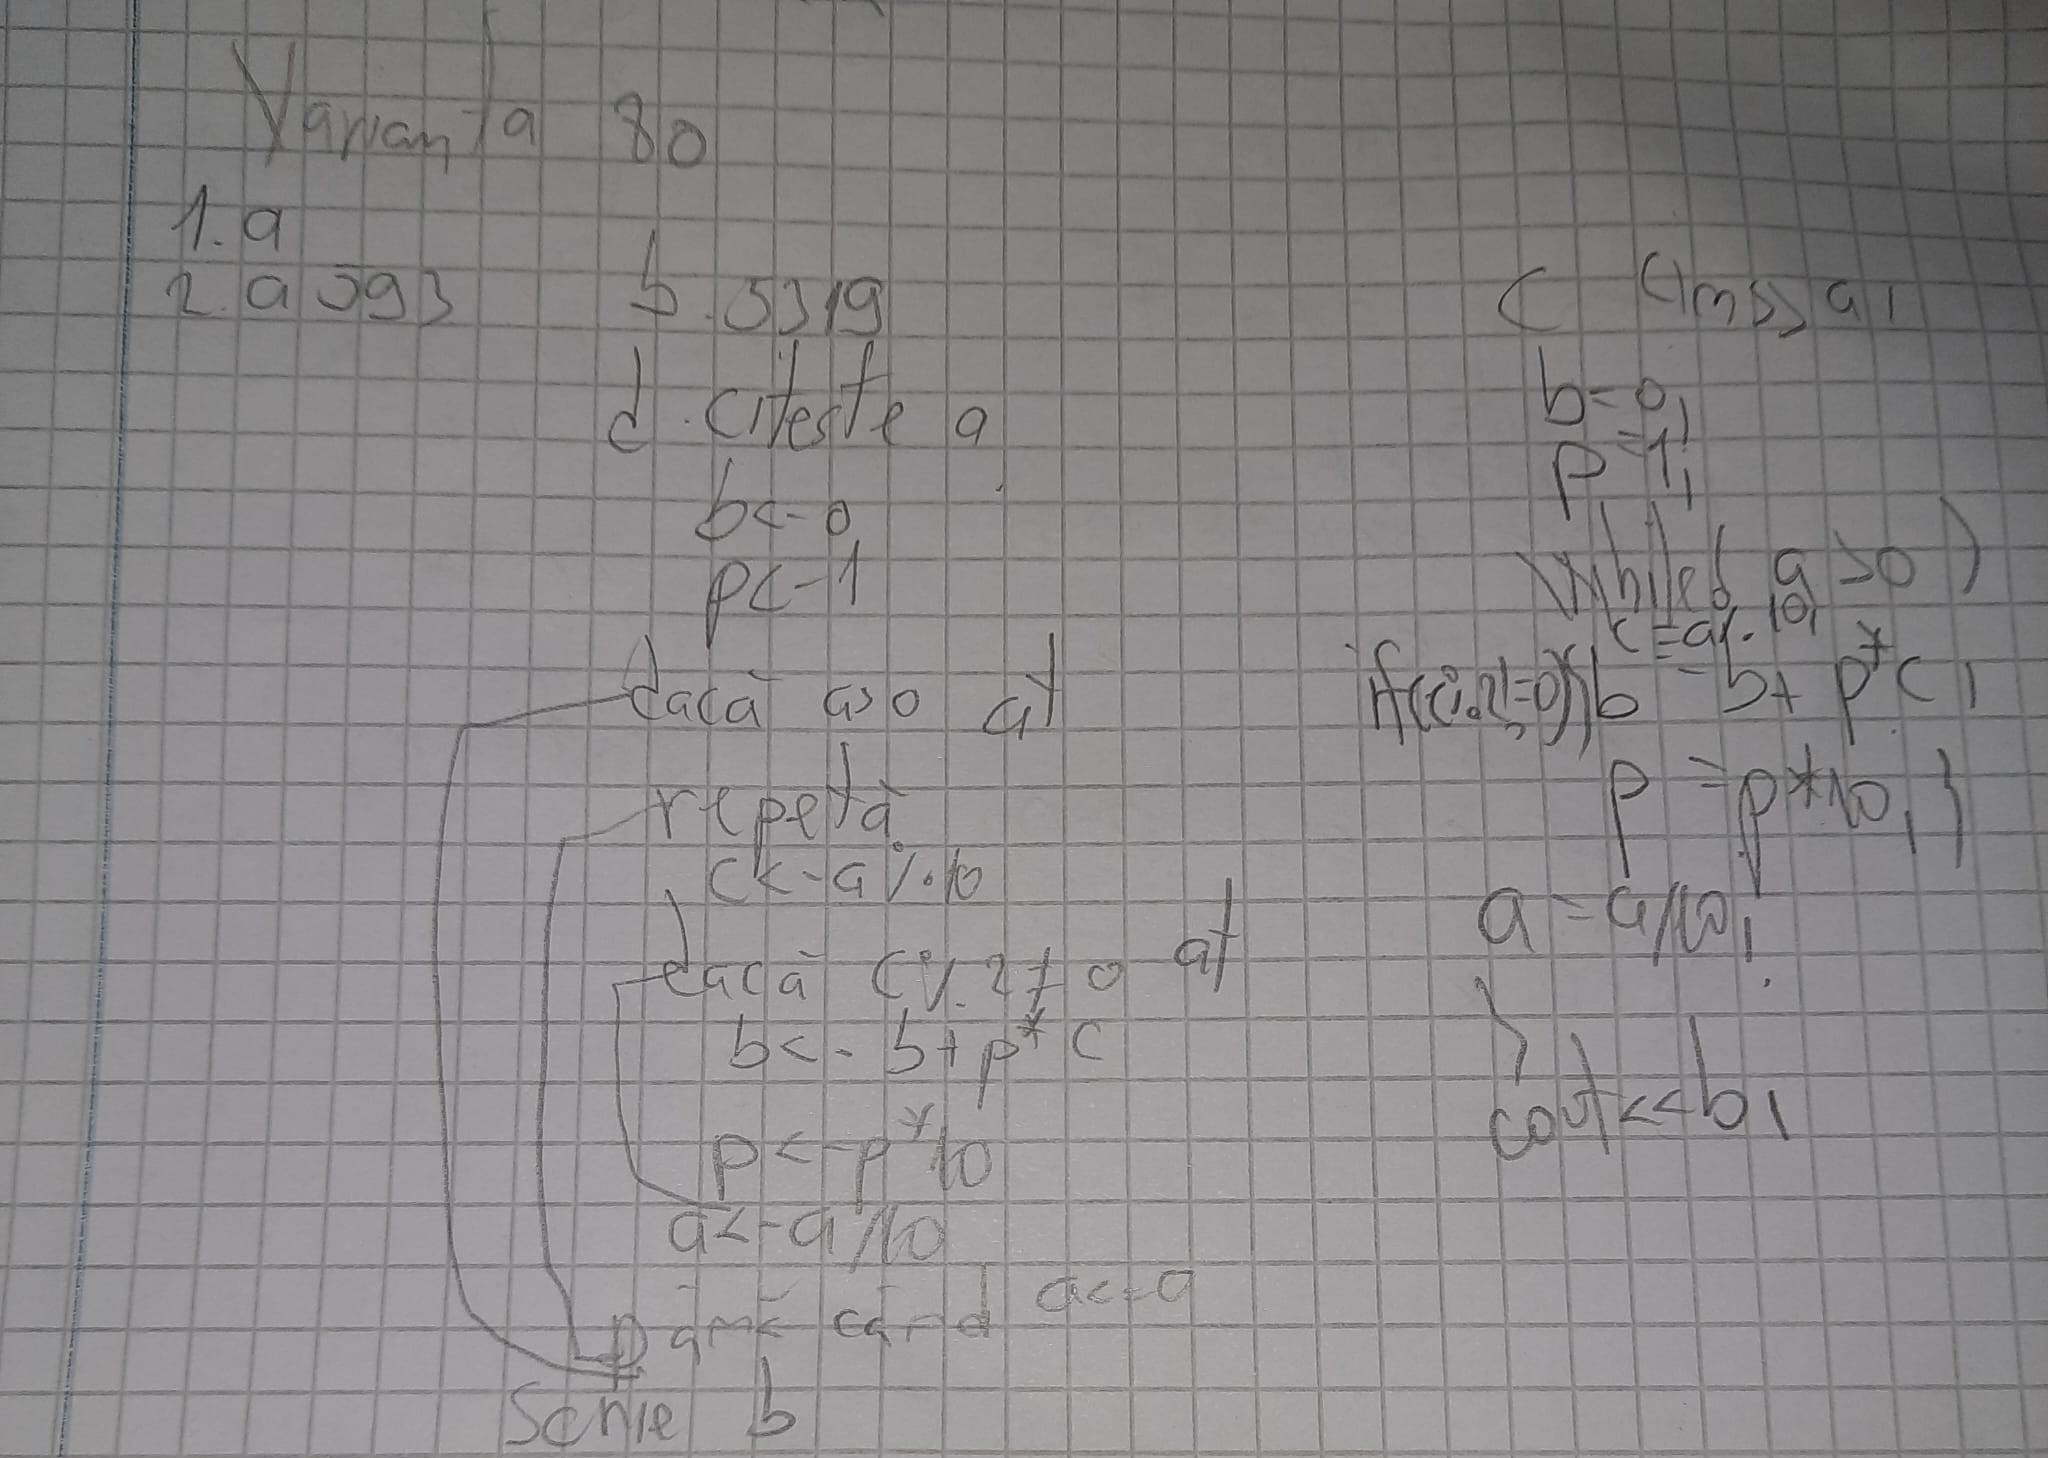 Varianta 80
1. a
2. a 593
b. 5319
d. citeste a
b<-0
p<-1
dacă a>0 at
repetă
c<-a%10
dacă c%2≠0 at
b<-b+p*c
p<-p*10
a<-a/10
până când a<=0
Scrie b
c cin>>a;
b=0;
p=1;
while( a>0 )
c=a%10;
if(c%2!=0){b=b+p*c;
p=p*10;}
a=a/10;
}
cout<<b;